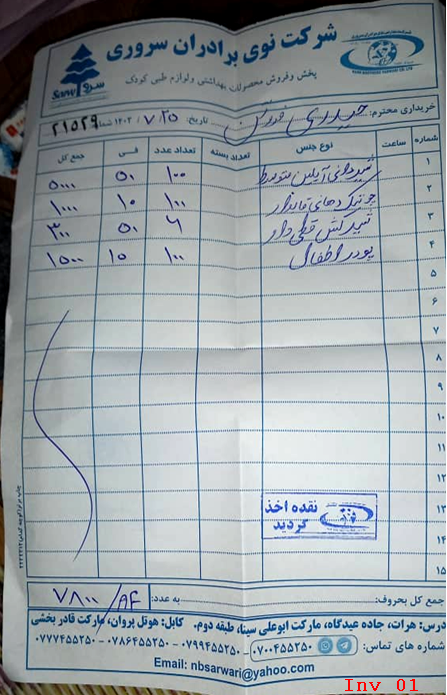 شرکت نوی برادران سروری
پخش و فروش محصولات بهداشتی و لوازم طبی کودک
خریداری محترم: حیدری فروش تاریخ: ۷/۲۵ /۱۴۰۲ شما ۲۱۵۲۹
شماره ساعت نوع جنس تعداد بسته تعداد عدد فی جمع کل
۱ شیردانی آیلین متوسط ۱۰۰ ۵۰ ۵۰۰۰
۲ ۱۰۰ ۱۰ ۱۰۰۰
۳ ۶ ۵۰ ۳۰۰
۴ پودر اطفال ۱۰۰ ۱۵ ۱۵۰۰
۵
۶
۷
۸
۹
۱۰
۱۱
۱۲
۱۳
۱۴
۱۵
نقده اخذ
گردید
جمع کل بحروف: به عدد: ۷۸۰۰/AF
درس: هرات، جاده عیدگاه، مارکت ابوعلی سینا، طبقه دوم. کابل: هوتل پروان، مارکت قادر بخشی
شماره های تماس: ۰۷۰۰۴۵۵۲۵۰ - ۰۷۹۹۴۵۵۲۵۰ - ۰۷۸۶۴۵۵۲۵۰ - ۰۷۷۷۴۵۵۲۵۰
Email: nbsarwari@yahoo.com
Inv 01